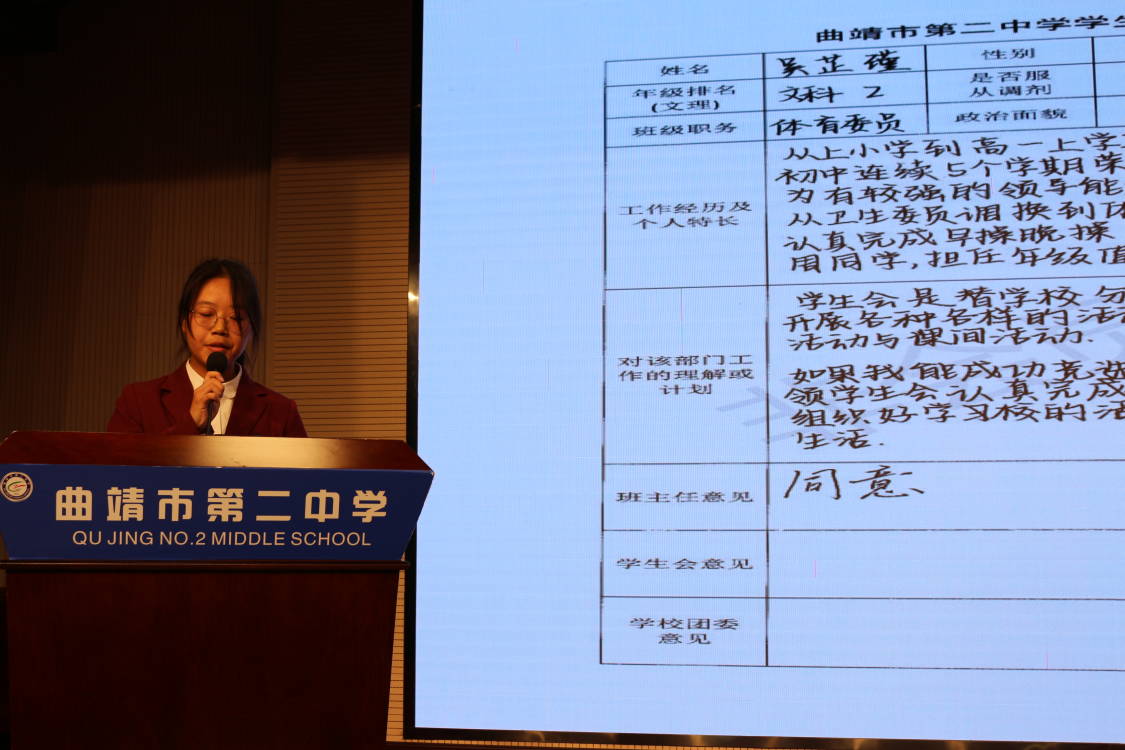 曲靖市第二中学学生
姓名
吴芷瑾
性别
年级排名
(文理)
文科 2
是否服
从调剂
班级职务
体育委员
政治面貌
工作经历及
个人特长
从上小学到高一上学
初中连续5个学期荣
为有较强的领导能
从卫生委员调换到体
认真完成早操晚操
用同学,担任年级值
对该部门工
作的理解或
计划
学生会是替学校分
开展各种各样的活动
活动与课间活动.
如果我能成功竞选
领学生会认真完成
组织好学习校的活
生活.
班主任意见
同意
学生会意见
学校团委
意见
曲靖市第二中学
QU JING NO.2 MIDDLE SCHOOL